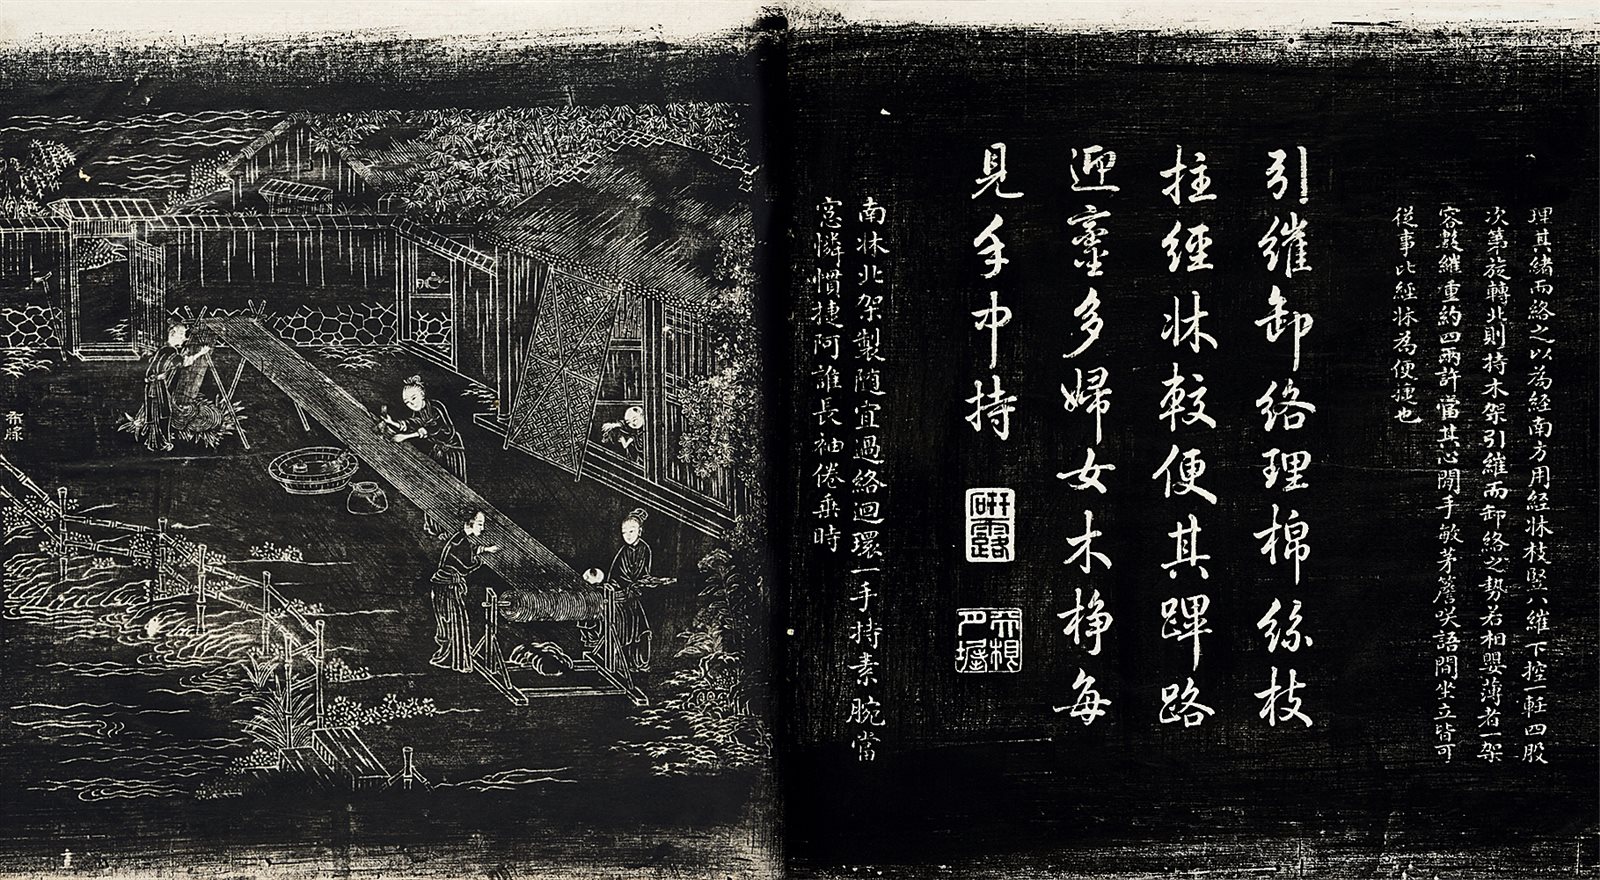 理其緒而絡之以為經南方用經牀枝竪八維下控一軖四股
次第旋轉北則持木架引維而卸絡之勢若相嬰薄者一架
容數維重約四兩許當其心閒手敏茅簷笑語間坐立皆可
從事比經牀為便捷也
引維卸絡理棉絲枝
拄經牀較便其蹕路
迎鑾多婦女木桪每
見手中持
研露
南牀北架製随宜過絡迴環一手持素腕當
窓憐慣捷阿誰長袖倦垂時
布漿